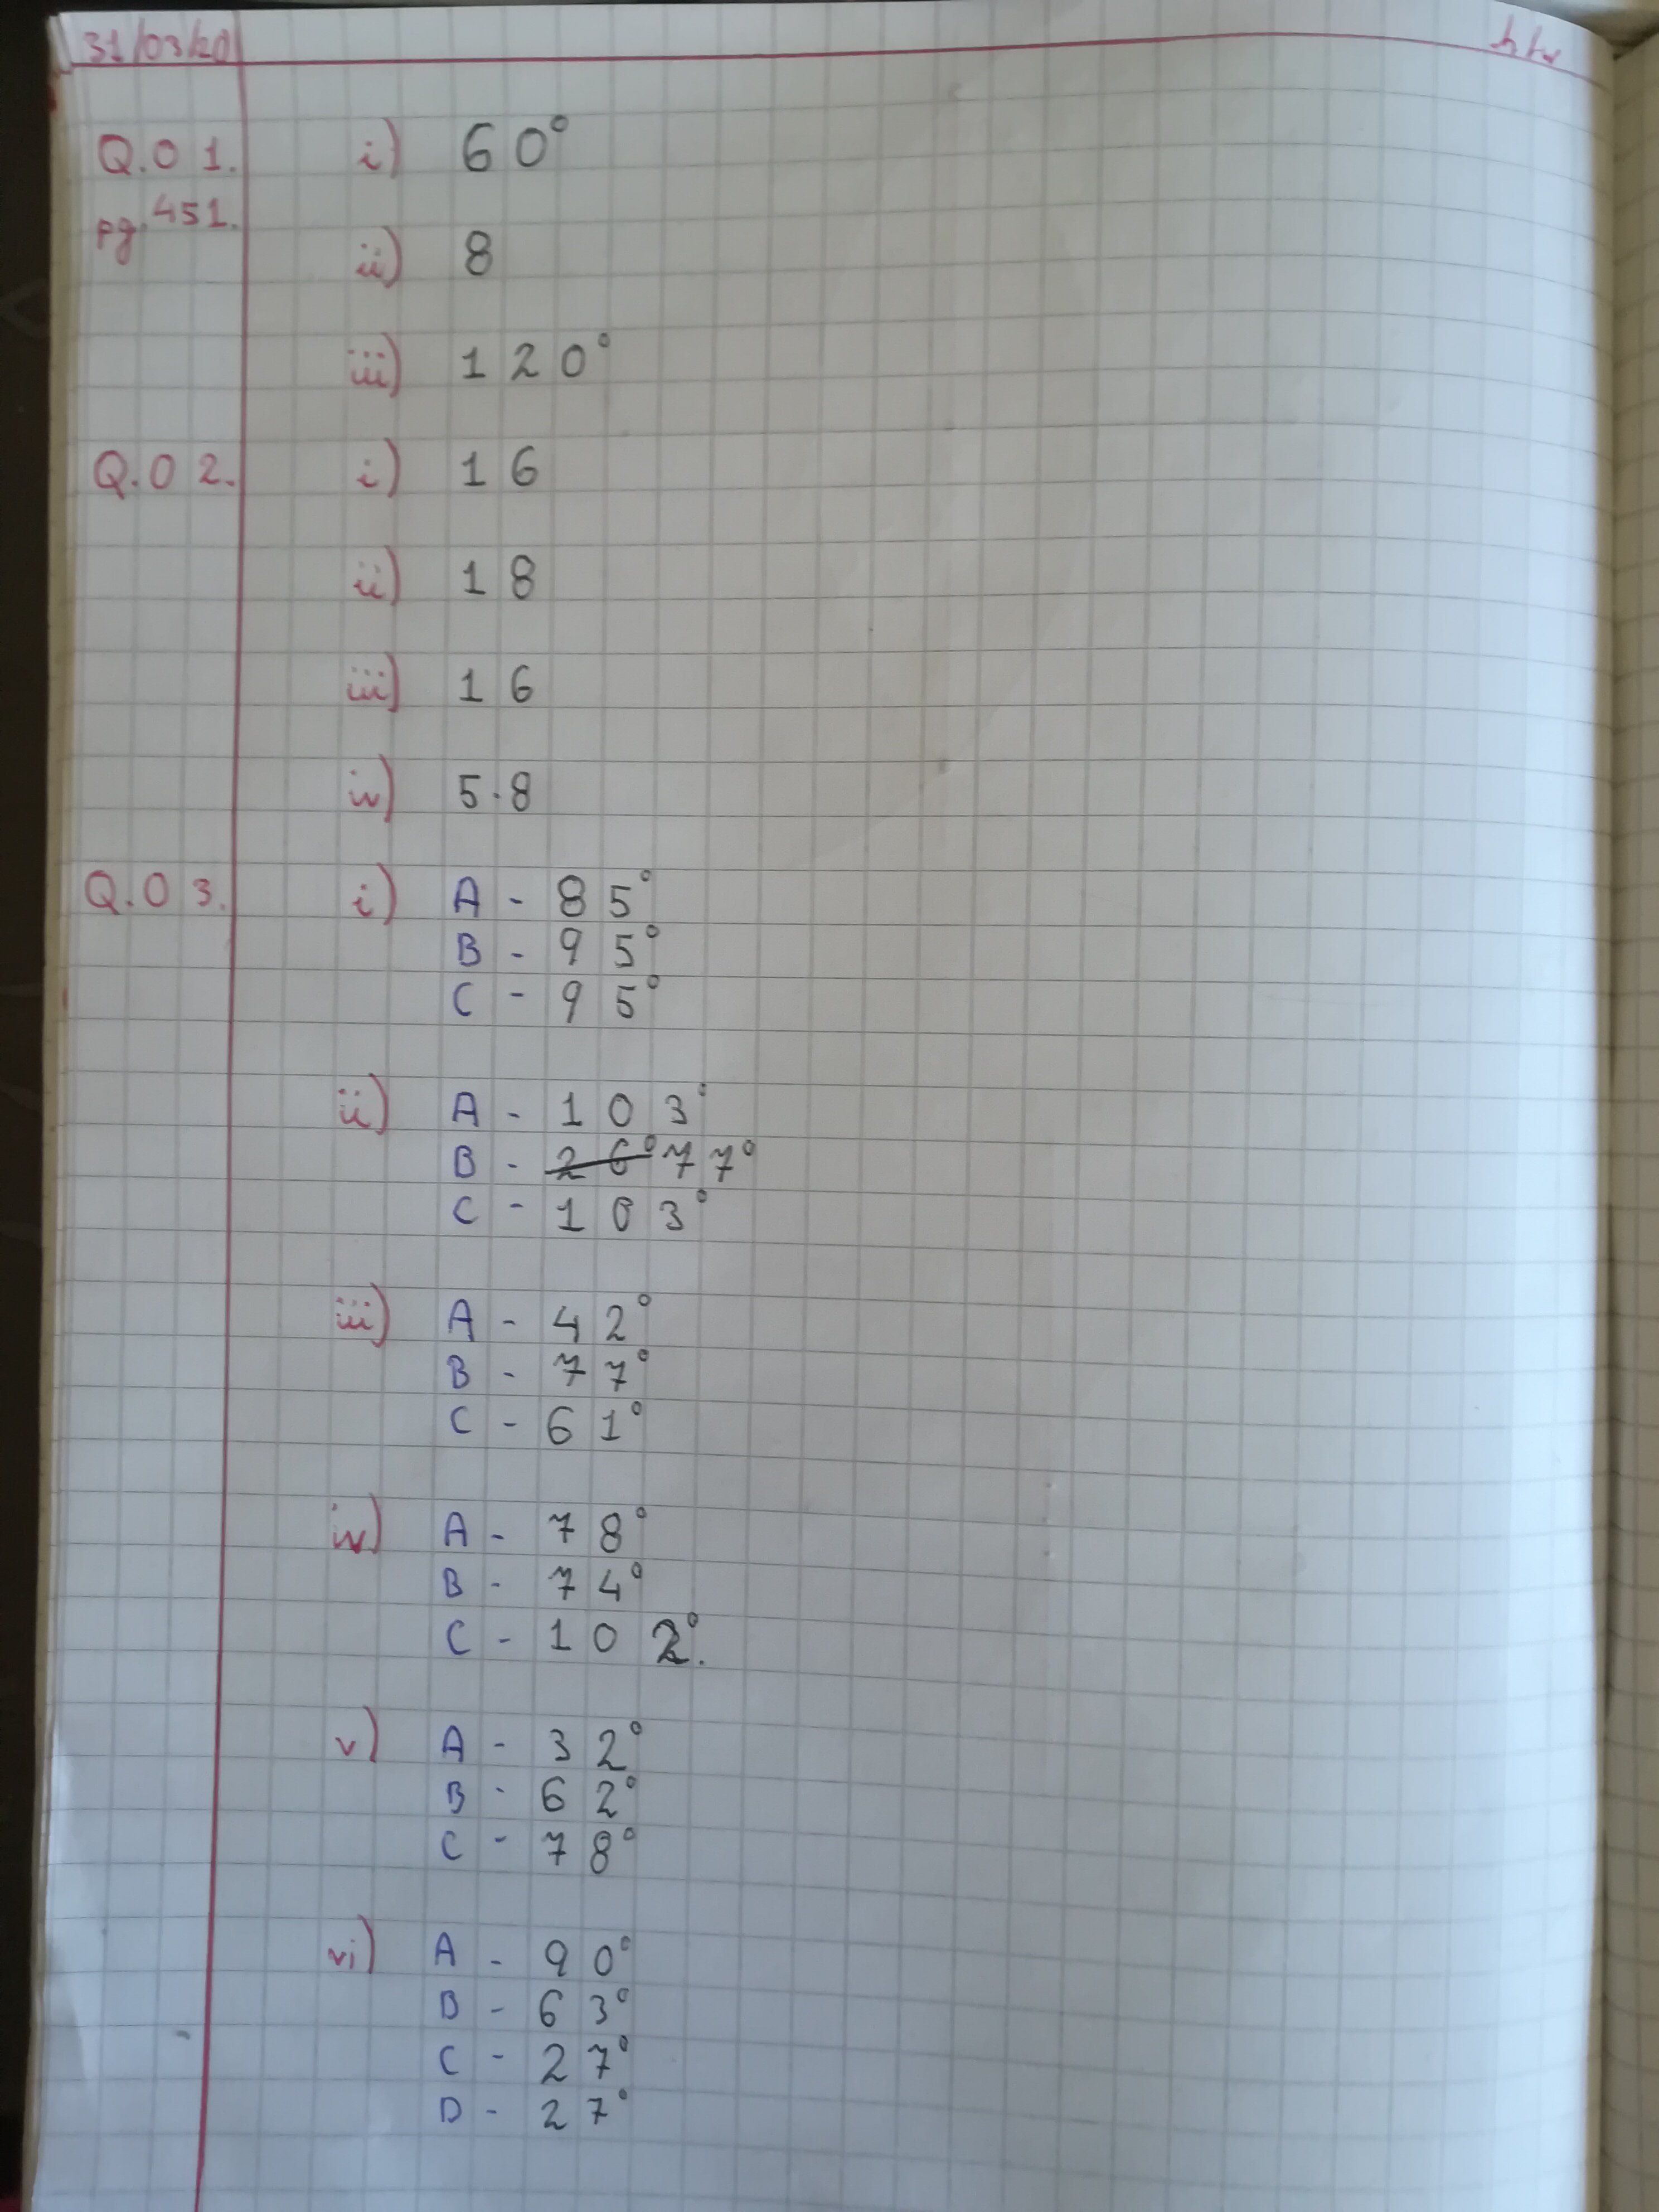 31/03/20 h/w
Q.01. i) 60°
pg. 451.
ii) 8
iii) 120°
Q.02. i) 16
ii) 18
iii) 16
iv) 5.8
Q.03. i) A - 85°
B - 95°
C - 95°
ii) A - 103°
B - 26° 77°
C - 103°
iii) A - 42°
B - 77°
C - 61°
iv) A - 78°
B - 74°
C - 102°.
v) A - 32°
B - 62°
C - 78°
vi) A - 90°
B - 63°
C - 27°
D - 27°